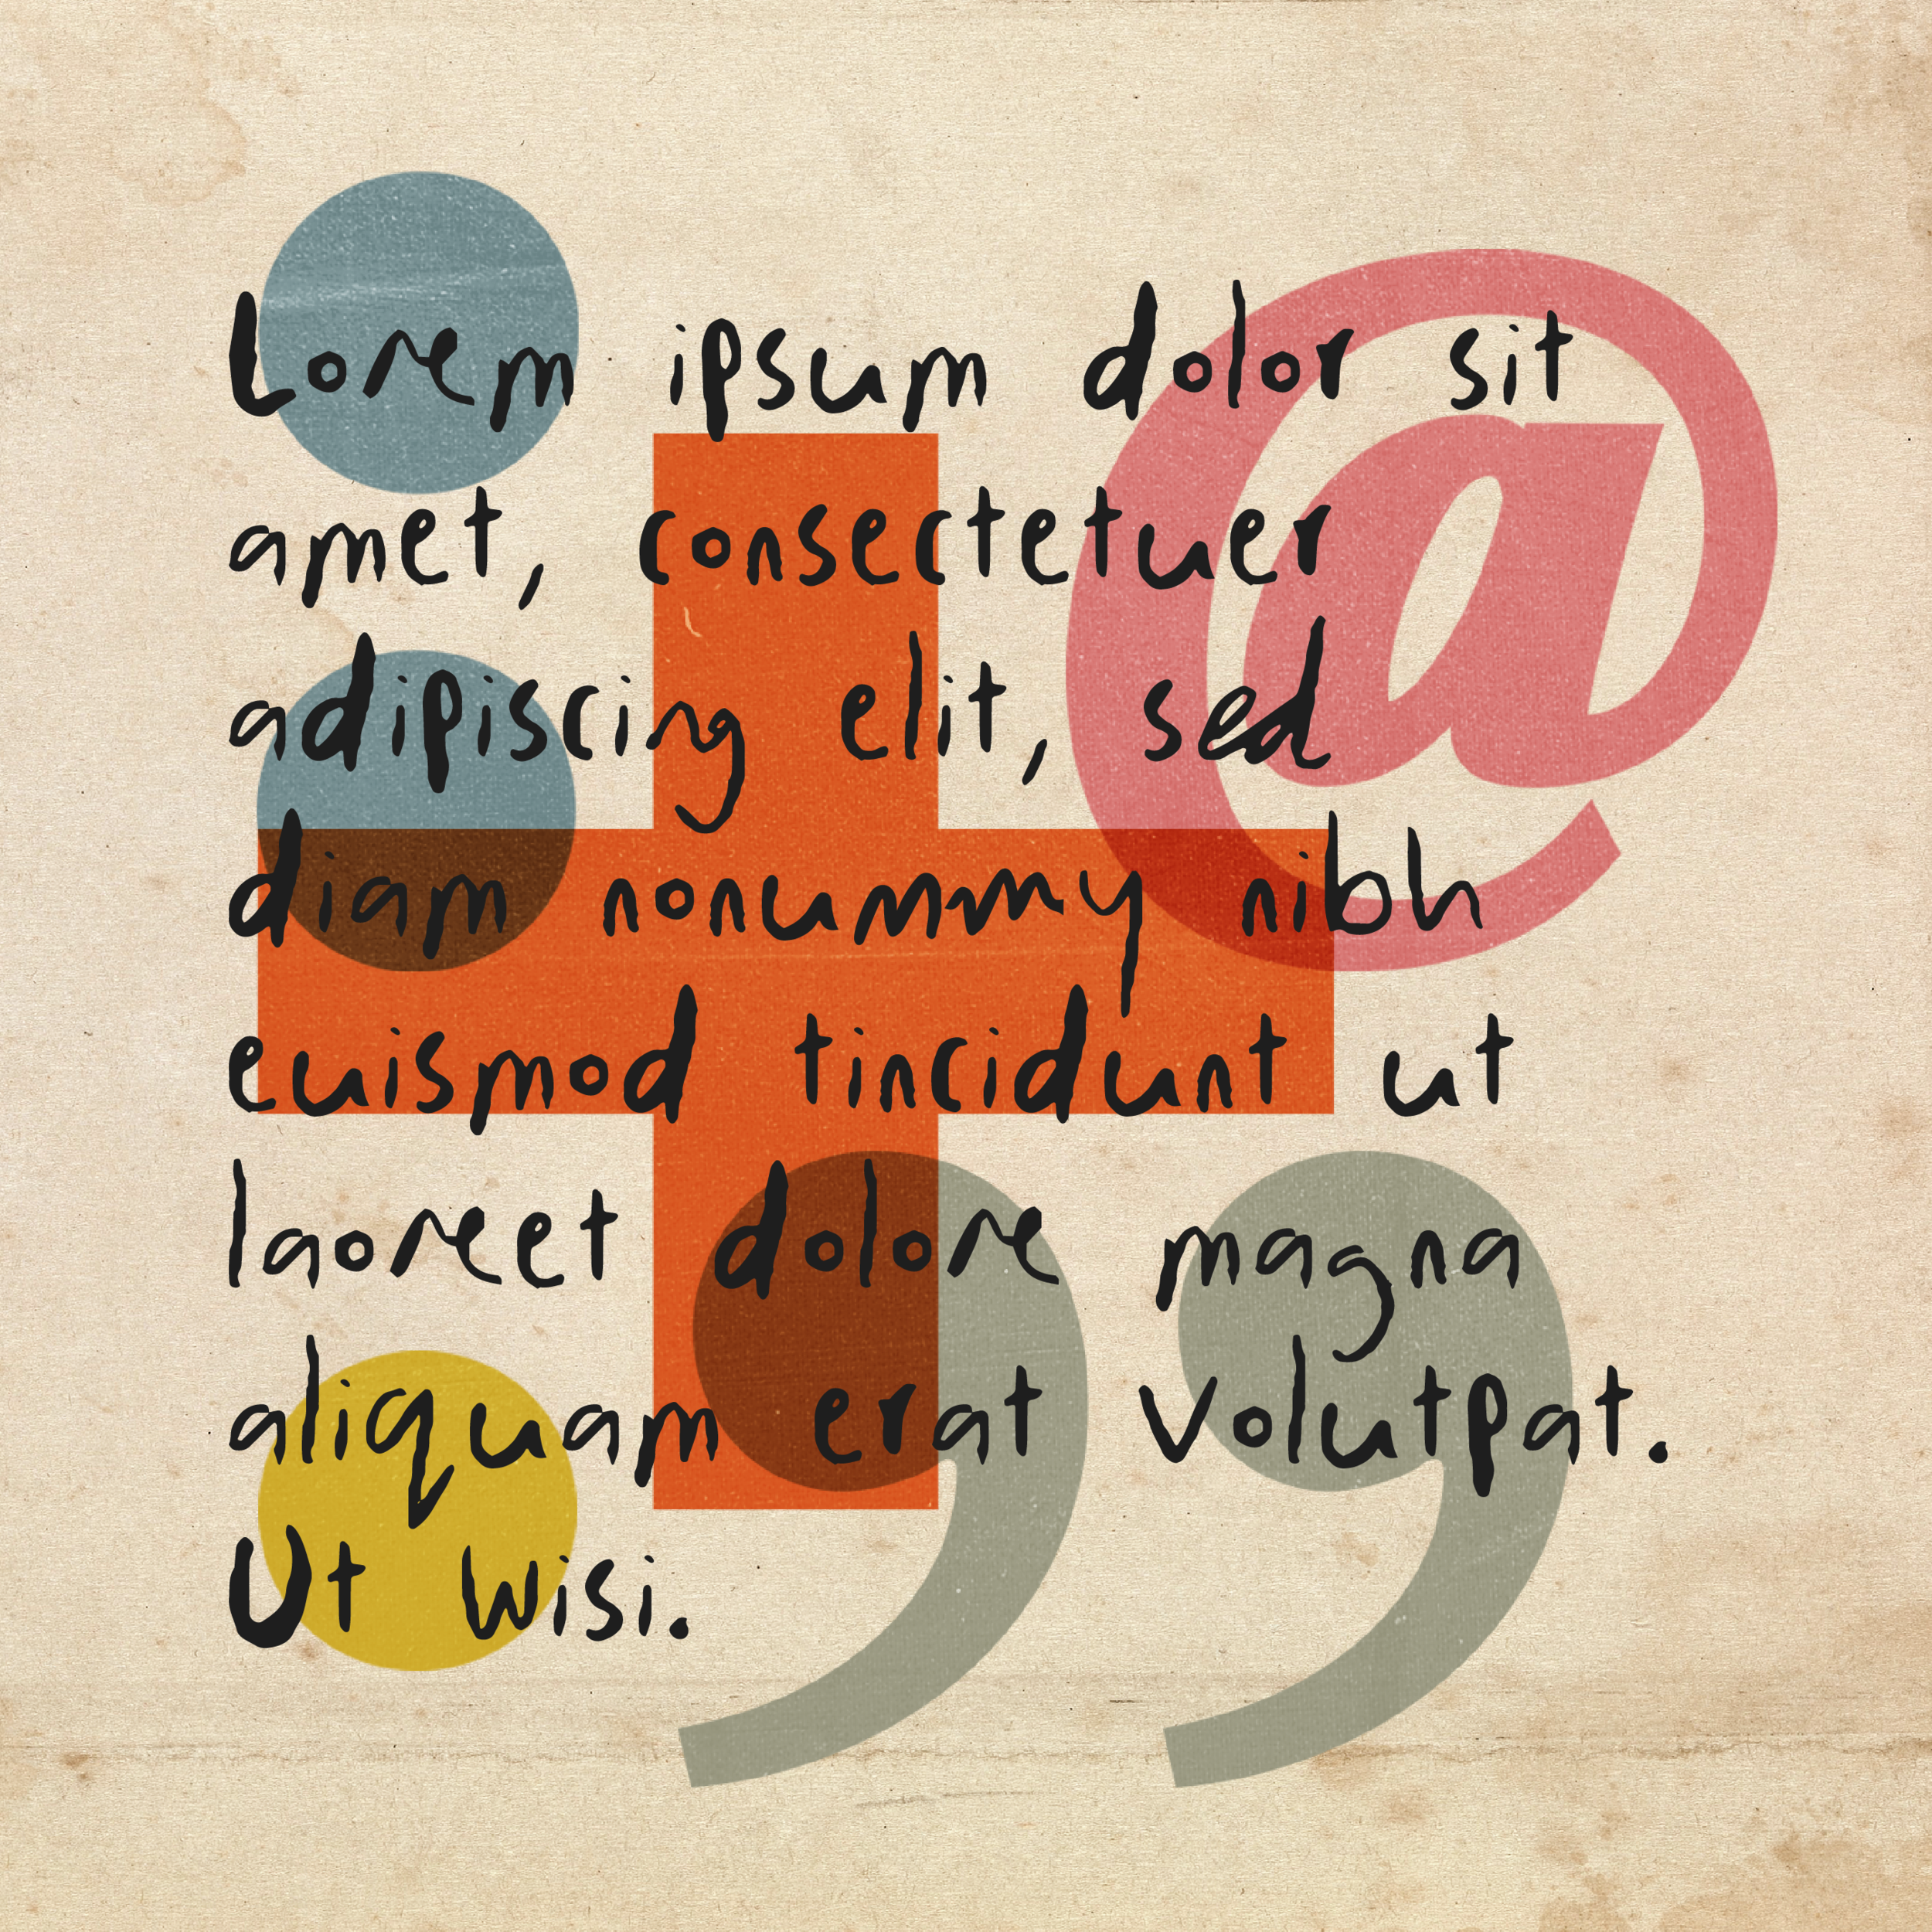 Lorem ipsum dolor sit
amet, consectetuer
adipiscing elit, sed
diam nonummy nibh
euismod tincidunt ut
laoreet dolore magna
aliquam erat volutpat.
Ut wisi.